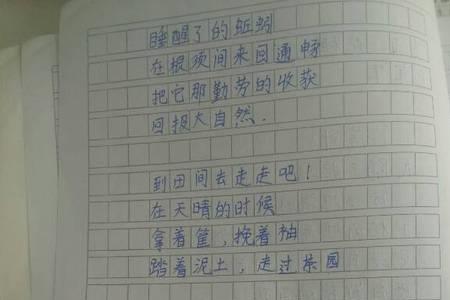 睡醒了的蚯蚓
在根须间来回通畅
把它那勤劳的收获
回报大自然.
到田间去走走吧！
在天晴的时候
拿着筐,挽着袖
踏着泥土,走过茶园